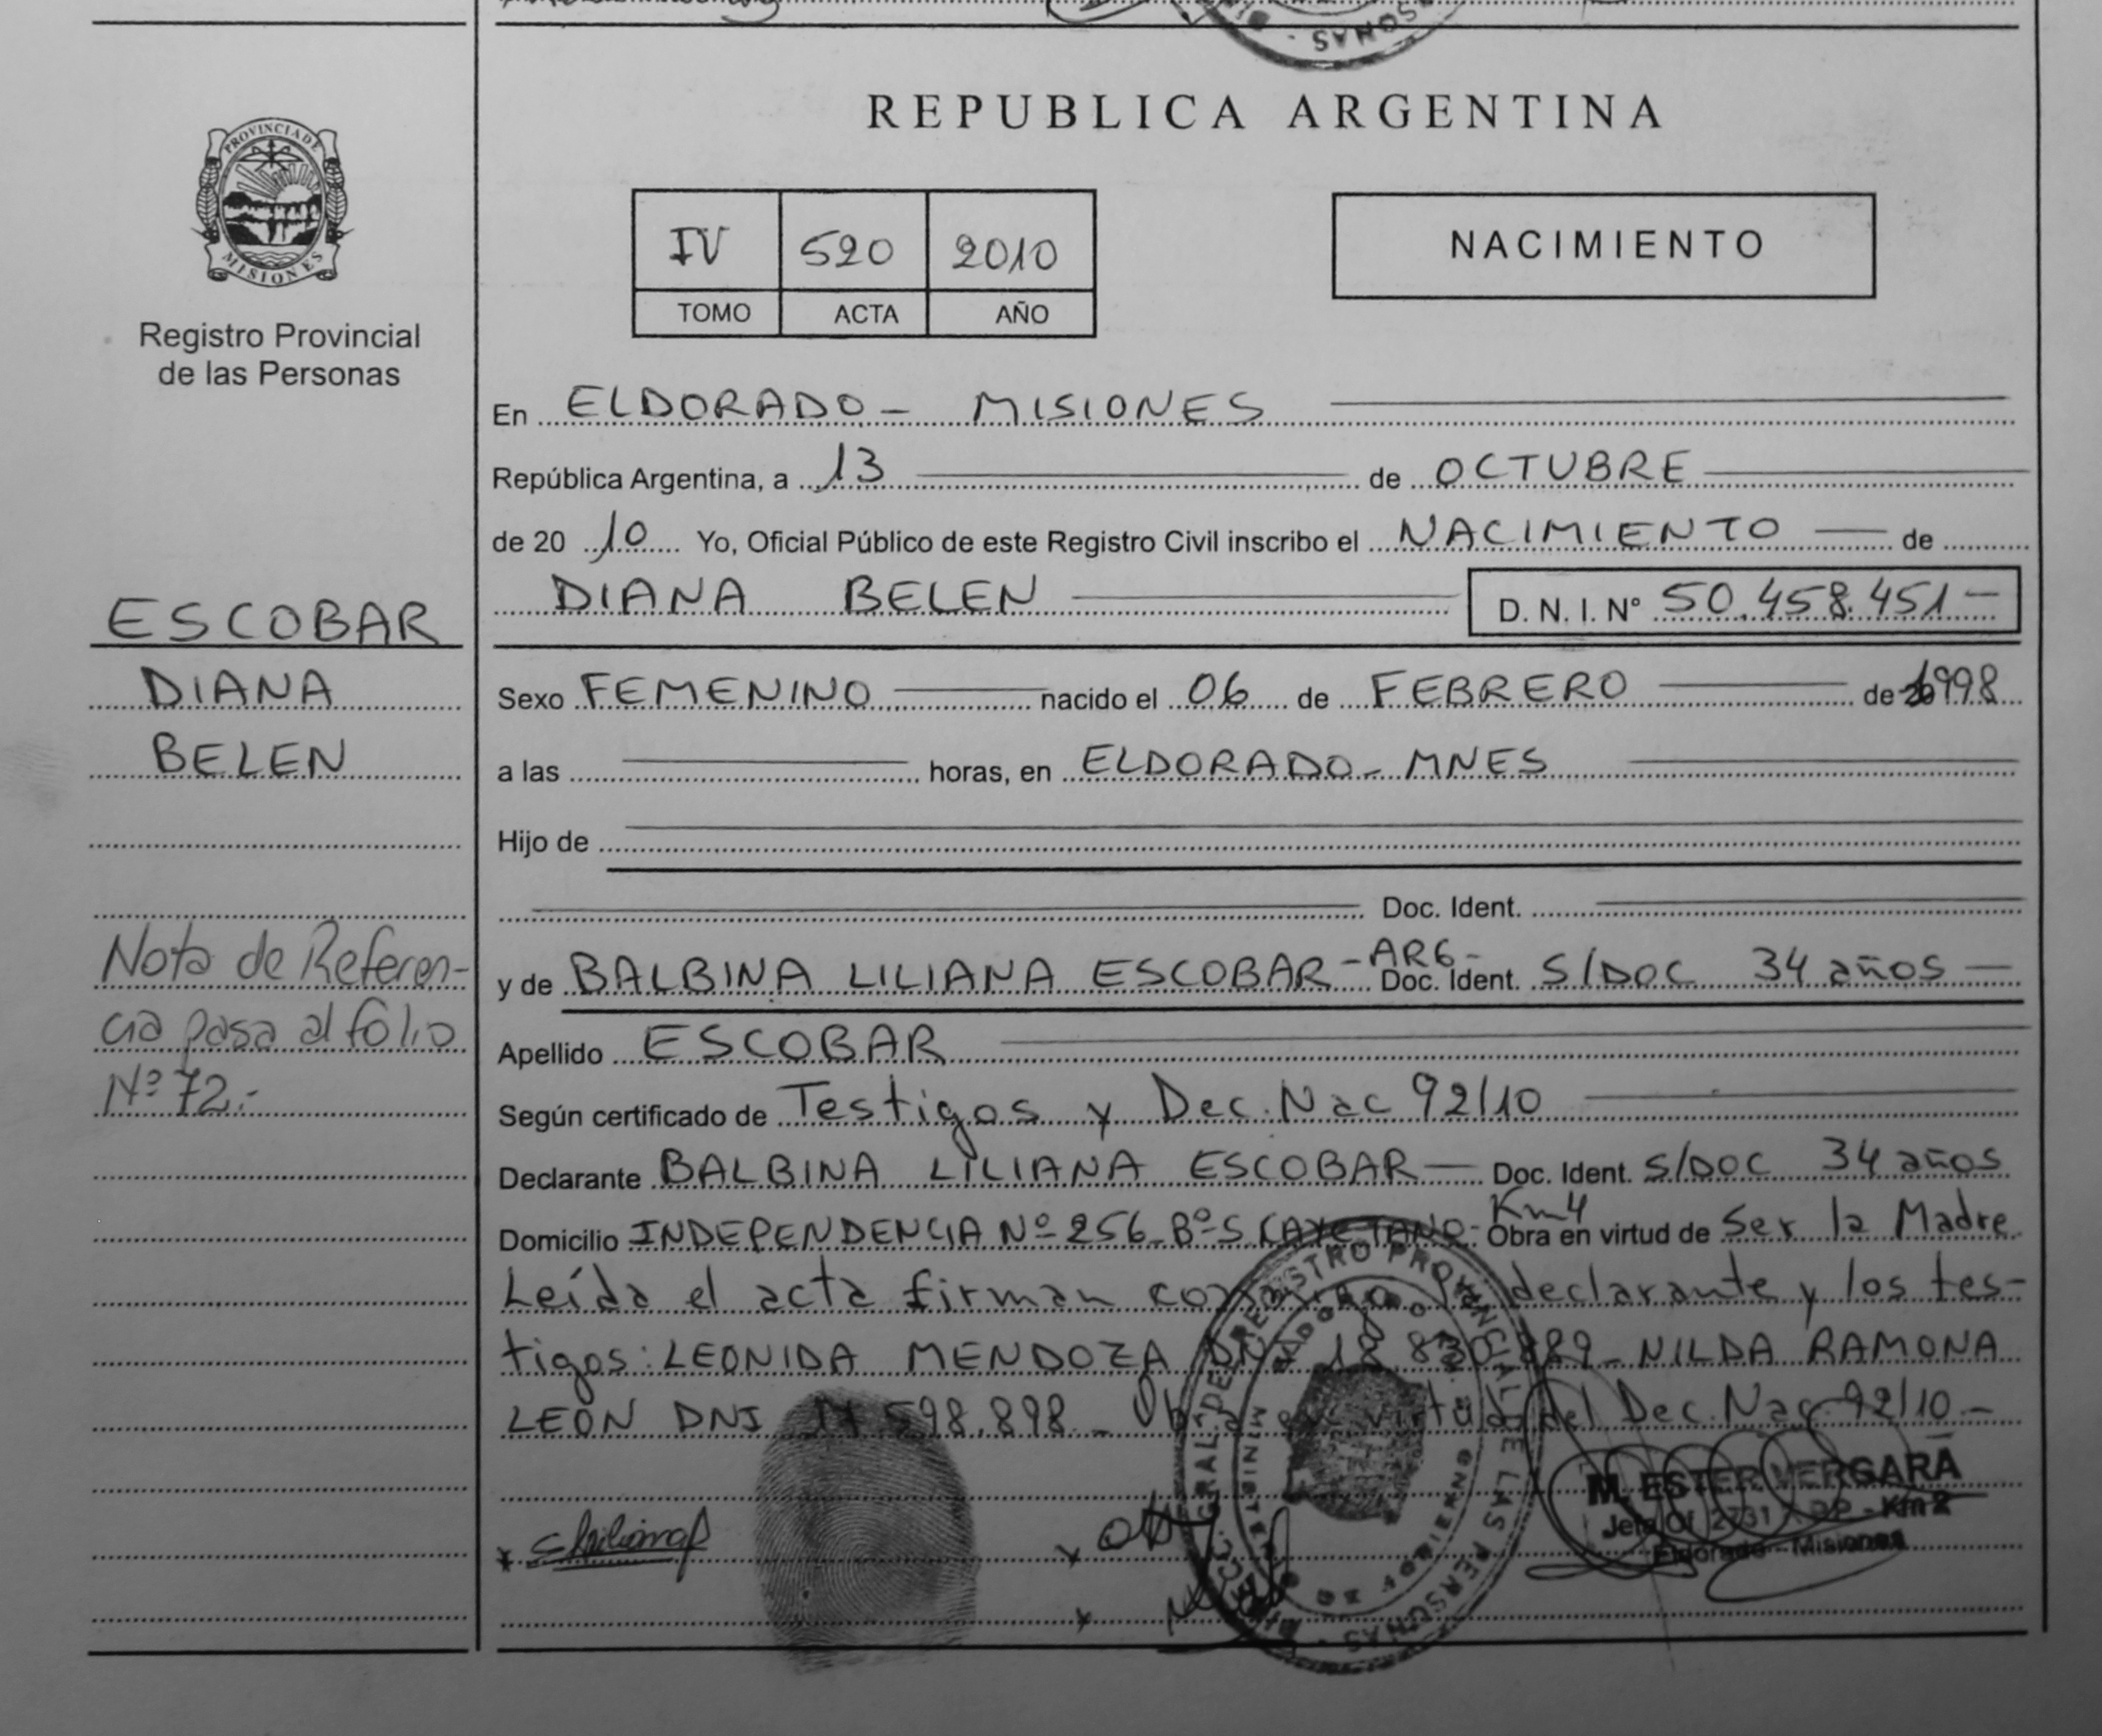 SONAS
REPUBLICA ARGENTINA
PROVINCIA DE
MISIONES
Registro Provincial
de las Personas
IV 520 2010
TOMO ACTA AÑO
NACIMIENTO
En ELDORADO - MISIONES
República Argentina, a 13 de OCTUBRE
de 20 10 Yo, Oficial Público de este Registro Civil inscribo el NACIMIENTO de
DIANA BELEN D. N. I. N° 50.458.451-
ESCOBAR
DIANA
BELEN
Sexo FEMENINO nacido el 06 de FEBRERO de 1998
a las horas, en ELDORADO - MNES
Hijo de
Doc. Ident.
y de BALBINA LILIANA ESCOBAR -ARG- Doc. Ident. S/DOC 34 años
Apellido ESCOBAR
Según certificado de Testigos y Dec. Nac 92/10
Declarante BALBINA LILIANA ESCOBAR Doc. Ident. S/DOC 34 años
Domicilio INDEPENDENCIA Nº 256 Bº S. CAYETANO - Km 4 Obra en virtud de Ser la Madre
Leída el acta firman declarante y los tes-
tigos: LEONIDA MENDOZA NILDA RAMONA
LEON DNI 598.898 - virtud del Dec. Nac 92/10.-
Nota de Referen-
cia pasa al folio
Nº 72.-
REGISTRO PROVINCIAL DE LAS PERSONAS
M. ESTER VERGARA
Km 2
Eldorado - Misiones